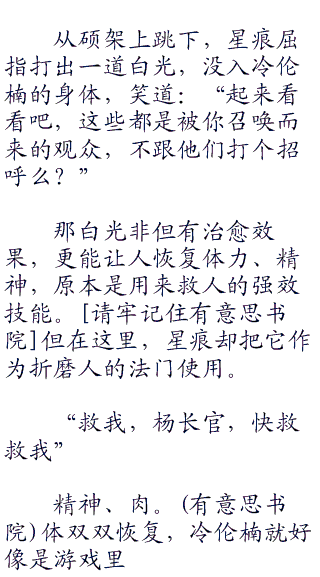 从硕架上跳下，星痕屈
指打出一道白光，没入冷伦
楠的身体，笑道：“起来看
看吧，这些都是被你召唤而
来的观众，不跟他们打个招
呼么？”
那白光非但有治愈效
果，更能让人恢复体力、精
神，原本是用来救人的强效
技能。[请牢记住有意思书
院]但在这里，星痕却把它作
为折磨人的法门使用。
“救我，杨长官，快救
救我”
精神、肉。(有意思书
院)体双双恢复，冷伦楠就好
像是游戏里